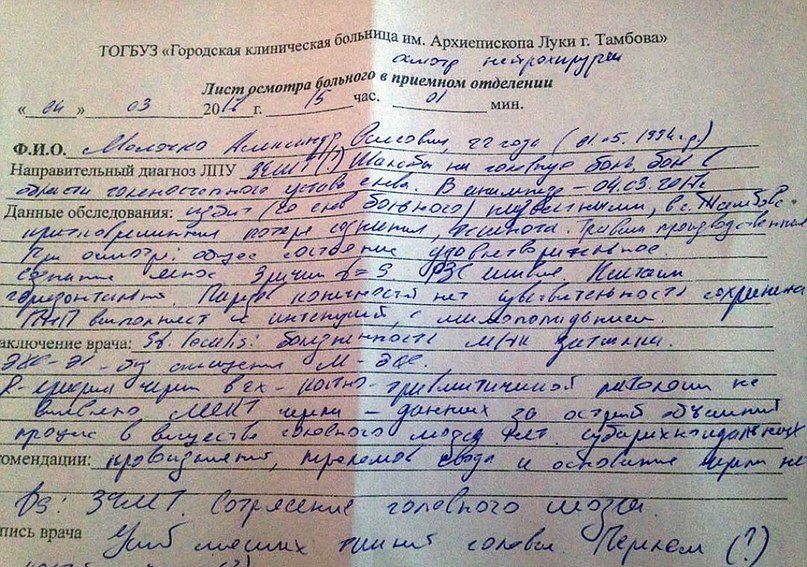 ТОГБУЗ «Городская клиническая больница им. Архиепископа Луки г. Тамбова»
осмотр нейрохирурга
Лист осмотра больного в приемном отделении
« 04 » 03 2017 г. 15 час. 01 мин.
Ф.И.О. Молочко Александр 22 года (01.05.1994 г.)
Направительный диагноз ЛПУ ЗЧМТ (?) Жалобы на головную боль, боли в
области голеностопного сустава слева. В анамнезе – 04.03.2017г
Данные обследования: избит (со слов больного) неизвестными, в г. Тамбове.
кратковременная потеря сознания, тошнота. Травма производственная
При осмотре: общее состояние удовлетворительное
сознание ясное Зрачки D=S живые. Нистагм
горизонтальный. Пареза конечностей нет чувствительность сохранена
ПНП выполняет с интенцией, с мимопопаданием.
аключение врача: St. localis: болезненность м/тк затылка.
ЭХО-ЭГ – без смещения М-эхо.
R-графия черепа в 2х – костно-травматической патологии не
выявлено МСКТ черепа – данных за острый объемный
процесс в веществе головного мозга нет. субарахноидальных
омендации: кровоизлияний, переломов свода и основания черепа не
Ds: ЗЧМТ. Сотрясение головного мозга.
пись врача Ушиб мягких тканей головы. Перелом (?)